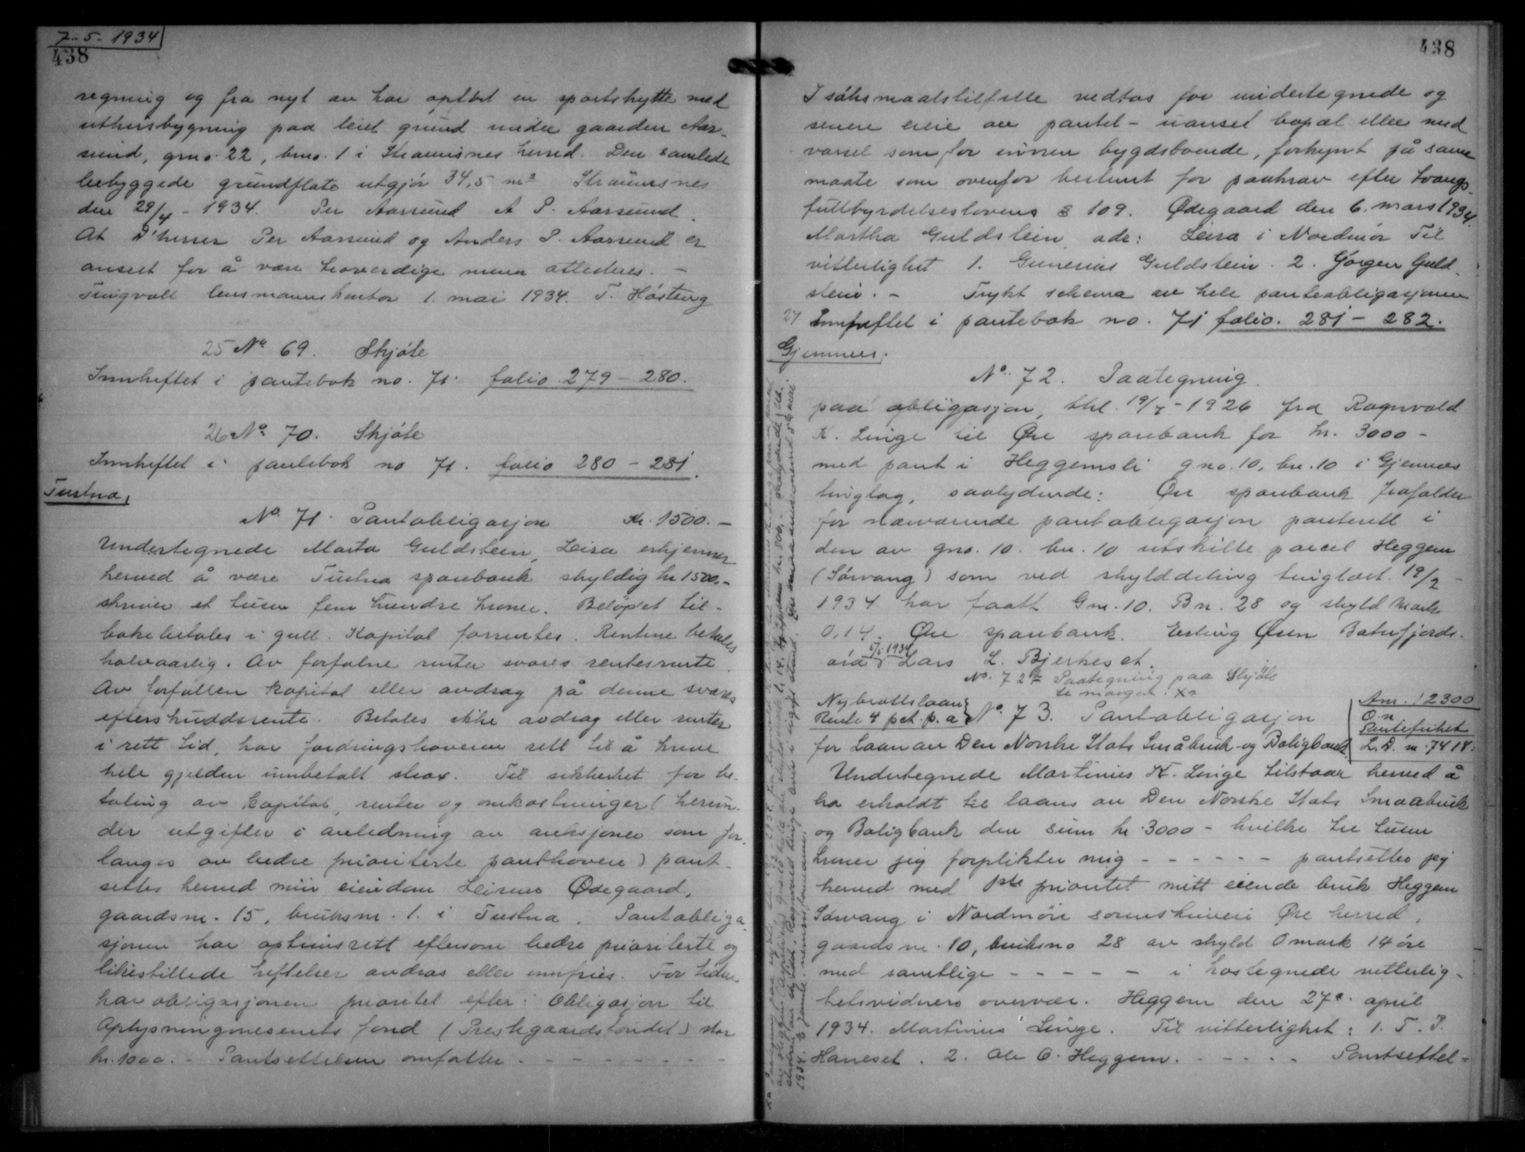 7-5-1934
438
regning og fra nyt av har opført en sportshytte med
uthusbygning paa leiet grund under gaarden Aar-
sund, gno. 22, bno. 1 i Straumsnes herred. Den samlede
bebyggede grundflate utgjör 34,5 m² Straumsnes
den 29/4 - 1934. Per Aarsund A P. Aarsund.
At D'herrer Per Aarsund og Anders P. Aarsund er
ansett for å være troverdige menn attesteres. -
Tingvoll lensmannskontor 1. mai 1934. T. Høsteng
25 No 69. Skjöte
Innheftet i pantebok no. 71. folio 279 - 280.
26 No 70. Skjöte
Innheftet i pantebok no 71. folio 280 - 281.
Tustna,
No. 71. Pantobligasjon Kr. 1500.-
Undertegnede Marta Guldstein, Leira erkjenner
herved å være Tustna sparebank skyldig kr 1500.-
skriver et tusen fem hundre kroner. Beløpet til-
bakebetales i gull. Kapital forrentes. Rentene betales
halvaarlig. Av forfalne renter svares rentesrente.
Av forfallen kapital eller avdrag på denne svares
efterskuddsrente. Betales ikke avdrag eller renter
i rett tid, har fordringshaveren rett til å kreve
hele gjelden innbetalt strax. Til sikkerhet for be-
taling av kapital, renter og omkostninger (herun-
der utgifter i anledning av auksjoner som for-
langes av bedre prioriterte panthavere) pant-
settes herved min eiendom Leiren Ödegaard,
gaardsnr. 15, bruksnr. 1. i Tustna. Pantobliga-
sjonen har optrinsrett eftersom bedre prioriterte og
likestillede heftelser avdras eller innfries. For tiden
har obligasjonen prioritet efter: Obligasjon til
Oplysningsvesenets fond (Prestegaardsfondet) stor
kr. 1000.- Pantsettelsen omfatter - - - - - - - -
438
I söksmaalstilfelle vedtas for undertegnede og
senere eiere av pantet - uanset bopæl eller med
varsel som for innen bygdsboende, forkynt på samme
maate som ovenfor bestemt for paakrav efter tvangs-
fullbyrdelseslovens § 109. Ödegaard den 6. mars 1934.
Martha Guldstein adr: Leira i Nordmör Til
vitterlighet 1. Gunerius Guldstein. 2. Jörgen Guld-
stein. - Trykt schema av hele panteobligasjonen
27 Innheftet i pantebok no. 71 folio. 281 - 282.
Gjemnes.
No. 72. Paategning
paa obligasjon, thl. 19/7 - 1926 fra Ragnvald
K. Linge til Öre sparebank for kr. 3000 -
med pant i Heggemsli gno. 10, bn. 10 i Gjemnes
tinglag, saalydende: Öre sparebank frafalder
for nærværende pantobligasjon panterett i
den av gno. 10. bn. 10 utskilte parcel Heggem
(Sörvang) som ved skylddeling tinglæst 19/2 -
1934 har faatt Gnr. 10. Bn. 28 og skyld Mark
0,14. Öre sparebank. Erling Ören Batnfjords-
öra 5/5 1934 Lars L. Bjerkeset.
No. 72a Paategning paa Skjöte
se margen. X2
Nybrottslaan
Rente 4 pct. p. a.
No. 73. Pantobligasjon
Anr. 12300
Pantefrihet
L. D. nr. 7418.
for Laan av Den Norske Stats Småbruk og Boligbank.
Undertegnede Martinus K. Linge tilstaar herved å
ha erholdt til laans av Den Norske Stats Smaabruk
og Boligbank den sum kr. 3000 - hvilke tre tusen
kroner jeg forplikter mig - - - - - - pantsetter jeg
herved med 1ste prioritet mitt eiende bruk Heggem
Sörvang i Nordmöre sorenskriveri Öre herred,
gaardsnr. 10, bruksno 28 av skyld 0 mark 14 öre
med samtlige - - - - - i hostegnede vitterlig-
hetsvidners overvær. Heggem den 27de april
1934. Martinus Linge. Til vitterlighet: 1. T. P.
Haneset. 2. Ole O. Heggem. - - - - - Pantsettel-